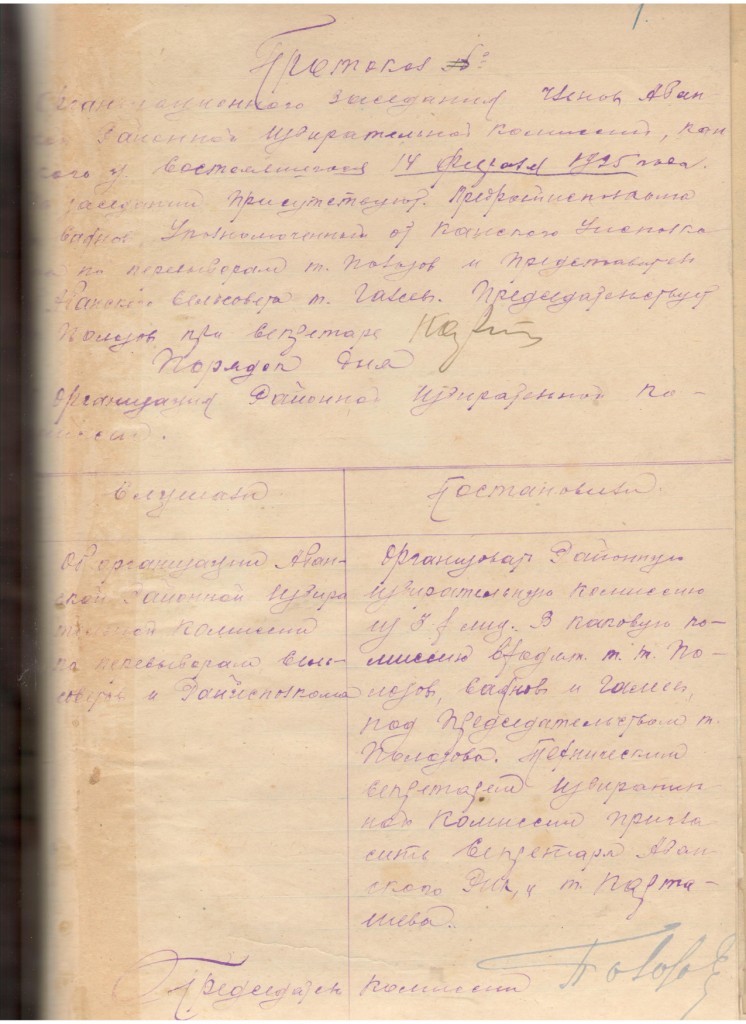 1.
Протокол №
Организационного заседания членов Абан-
ской Районной Избирательной Комиссии, Кан-
ского у. Состоявшегося 14 февраля 1925 года.
заседании присутствуют. Предрайисполкома
Сабнов Уполномоченный от Канского Уисполко
по перевыборам т. Полозов и Представител
Абанского сельсовета т. Галеев. Председательствует
Полозов при секретаре
Порядок дня
Организация Районной Избирательной Ко-
миссии.
Слушали
Постановили
Об организации Абан-
ской Районной Избира
тельной Комиссии
по перевыборам Сель-
советов и Райисполкома
Организовать Районную
избирательную комиссию
из 3х лиц. В каковую ко-
миссию входит т.т. По-
лозов, Сабнов и Галеев,
под Председательством т.
Полозова. Техническим
секретарем Избирател
ной Комиссии пригла
сить Секретаря Абан-
ского Рик, и т. Карта-
шева.
Председател Комиссии Полозов